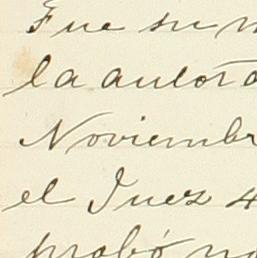 Fue su
la autor
Noviembr
el Juez 4
probó